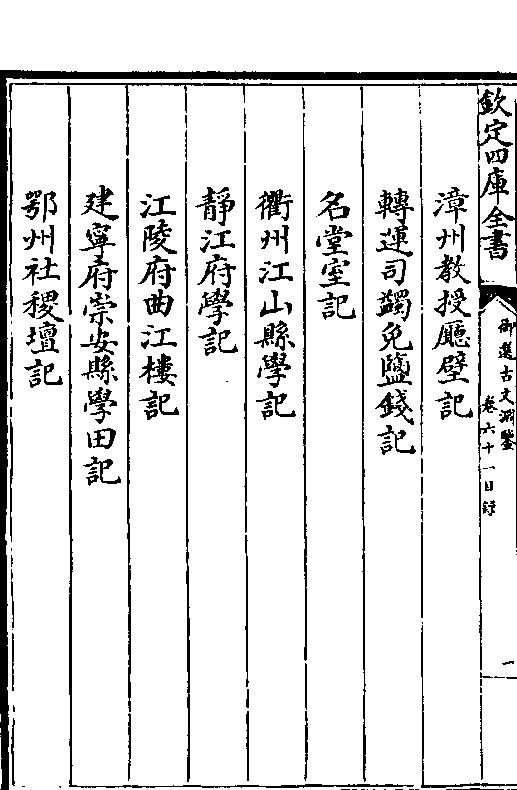 欽定四庫全書
御選古文淵鑒
卷六十一目録
一
漳州教授廳壁記
轉運司蠲免鹽錢記
名堂室記
衢州江山縣學記
靜江府學記
江陵府曲江樓記
建寧府崇安縣學田記
鄂州社稷壇記